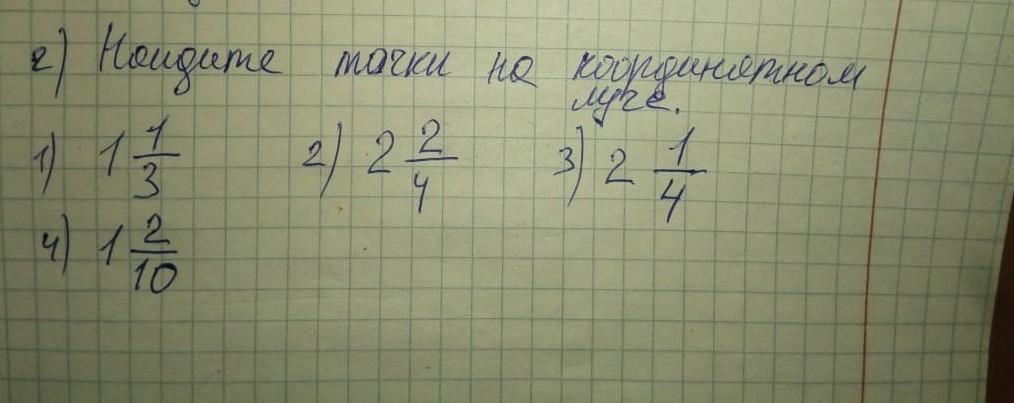 2) Найдите точки на координатном
луче.
1) 1 1/3 2) 2 2/4 3) 2 1/4
4) 1 2/10